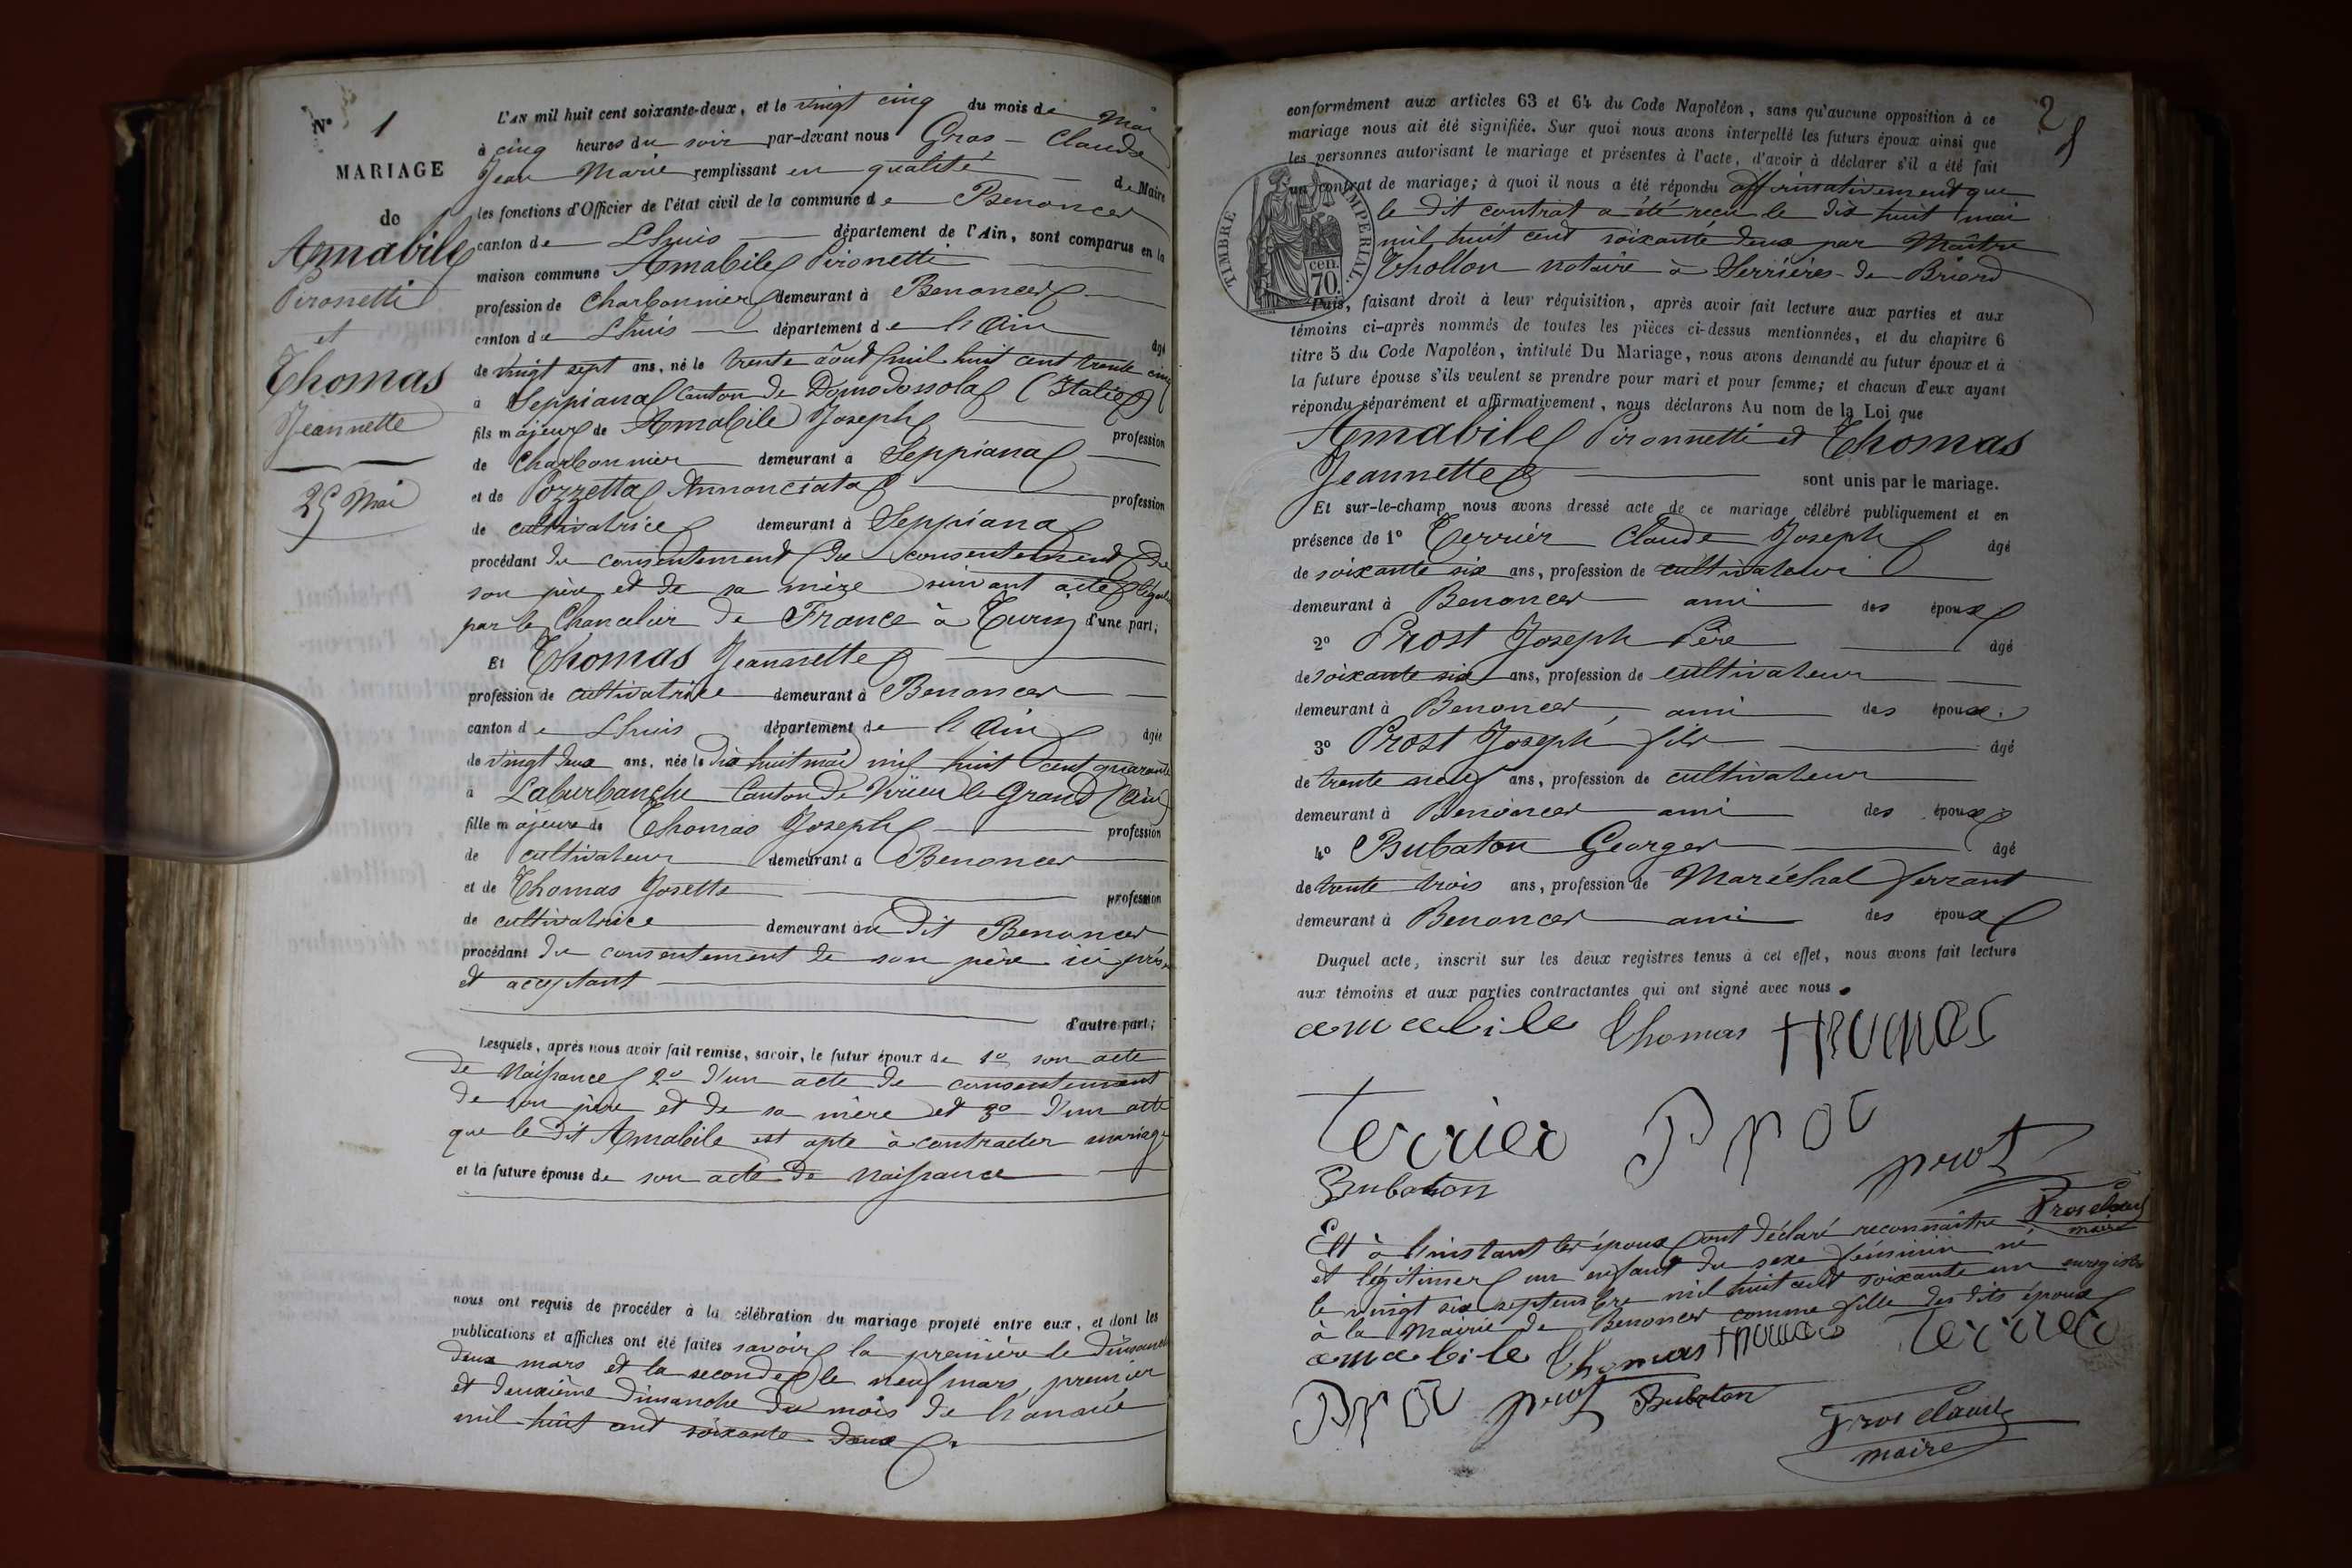 N° 1
MARIAGE
de
Amabile
Pironetti
et
Thomas
Jeannette
25 Mai
L'AN mil huit cent soixante-deux, et le vingt cinq du mois de Mai
à cinq heures du soir par-devant nous Gros - Claude
Jean Marie remplissant en qualité de Maire
les fonctions d'Officier de l'état civil de la commune de Benonces
canton de Lhuis département de l'Ain, sont comparus en la
maison commune Amabile Pironetti
profession de Charbonnier demeurant à Benonces
canton de Lhuis département de l'Ain âgé
de vingt sept ans, né le trente août mil huit cent trente cinq
à Seppiana Canton de Domodossola (Italie)
fils majeur de Amabile Joseph profession
de Charbonnier demeurant à Seppiana
et de Pozzetta Annonciata profession
de cultivatrice demeurant à Seppiana
procédant du consentement du consentement de
son père et de sa mère suivant acte
par le Chancelier de France à Turin d'une part;
Et Thomas Jeannette
profession de cultivatrice demeurant à Benonces
canton de Lhuis département de l'Ain âgée
de vingt deux ans, née le dix huit mai mil huit cent quarante
à Laburbanche Canton de Virieu le Grand (Ain)
fille majeure de Thomas Joseph profession
de cultivateur demeurant à Benonces
et de Thomas Josette profession
de cultivatrice demeurant au dit Benonces
procédant du consentement de son père ici
et acceptant
d'autre part;
Lesquels, après nous avoir fait remise, savoir, le futur époux de 1° son acte
de Naissance 2° d'un acte de consentement
de son père et de sa mère et 3° d'un acte
que le dit Amabile est apte à contracter mariage
et la future épouse de son acte de Naissance
nous ont requis de procéder à la célébration du mariage projeté entre eux, et dont les
publications et affiches ont été faites savoir la première le dimanche
deux mars et la seconde le neuf mars, premier
et deuxième dimanche du mois de l'année
mil huit cent soixante deux
2
conformément aux articles 63 et 64 du Code Napoléon, sans qu'aucune opposition à ce
mariage nous ait été signifiée. Sur quoi nous avons interpellé les futurs époux ainsi que
les personnes autorisant le mariage et présentes à l'acte, d'avoir à déclarer s'il a été fait
un contrat de mariage; à quoi il nous a été répondu affirmativement que
le dit contrat a été reçu le dix huit mai
mil huit cent soixante deux par Maître
Thollon notaire à Serrières-de Briord
TIMBRE IMPERIAL.
cen.
70.
Puis, faisant droit à leur réquisition, après avoir fait lecture aux parties et aux
témoins ci-après nommés de toutes les pièces ci-dessus mentionnées, et du chapitre 6
titre 5 du Code Napoléon, intitulé Du Mariage, nous avons demandé au futur époux et à
la future épouse s'ils veulent se prendre pour mari et pour femme; et chacun d'eux ayant
répondu séparément et affirmativement, nous déclarons Au nom de la Loi que
Amabile Pironnetti et Thomas
Jeannette sont unis par le mariage.
Et sur-le-champ nous avons dressé acte de ce mariage célébré publiquement et en
présence de 1° Terrier Claude Joseph âgé
de soixante six ans, profession de cultivateur
demeurant à Benonces ami des époux
2° Prost Joseph Père âgé
de soixante six ans, profession de cultivateur
demeurant à Benonces, ami des époux.
3° Prost Joseph fils âgé
de trente neuf ans, profession de cultivateur
demeurant à Benonces ami des époux
4° Bubaton Georges âgé
de trente trois ans, profession de Maréchal ferrant
demeurant à Benonces ami des époux
Duquel acte, inscrit sur les deux registres tenus à cet effet, nous avons fait lecture
aux témoins et aux parties contractantes qui ont signé avec nous.
amabile Thomas THOMAS
Terrier Prot
prot
Bubaton
Gros claude
maire
Et à l'instant les époux ont déclaré reconnaître
et légitimer un enfant du sexe féminin né
le vingt six septembre mil huit cent soixante un enregistré
à la Mairie de Benonces comme fille des dits époux
amabile Thomas THOMAS Terrier
Prot prot Bubaton
Gros claude
maire